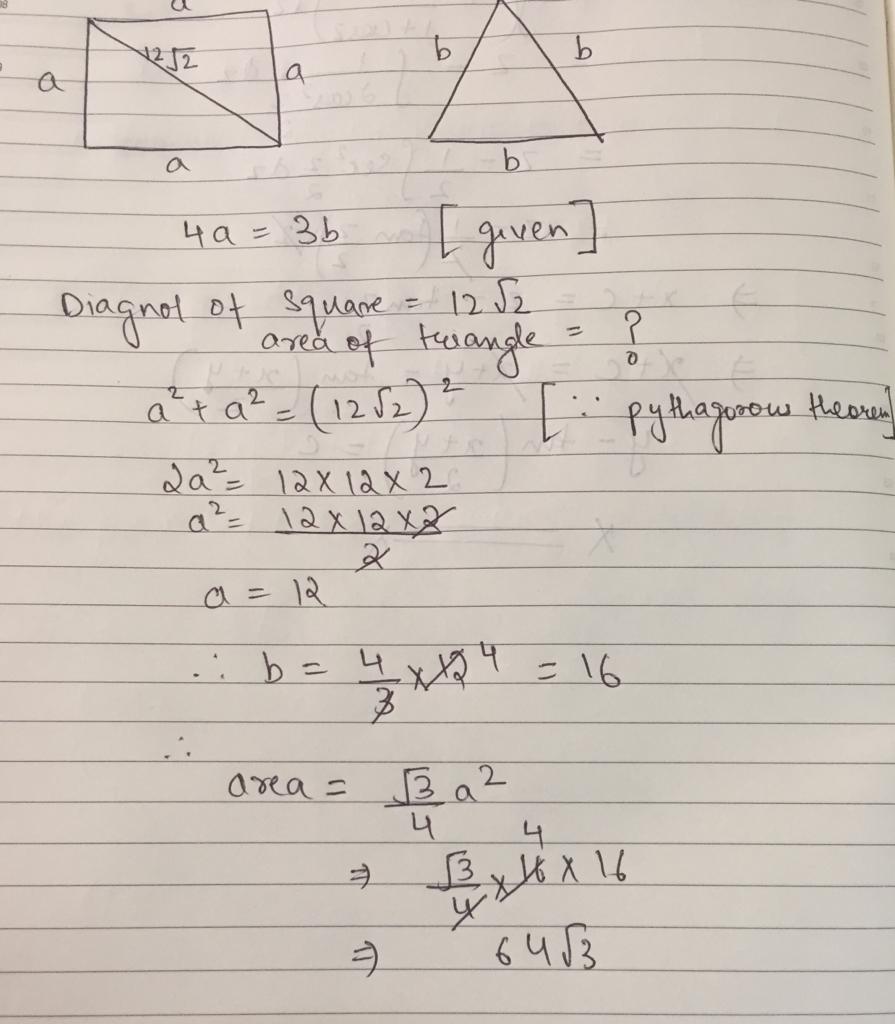 a
12√2
a
a
a
b
b
b
4a = 3b [given]
Diagnol of square = 12√2
area of triangle = ?
a² + a² = (12√2)² [∵ pythagorous theorem]
2a² = 12 × 12 × 2
a² = 12 × 12 × 2
2
a = 12
∴ b = 4/3 × 12 4 = 16
∴
area = √3/4 a²
4
⇒ √3/4 × 16 × 16
⇒ 64√3